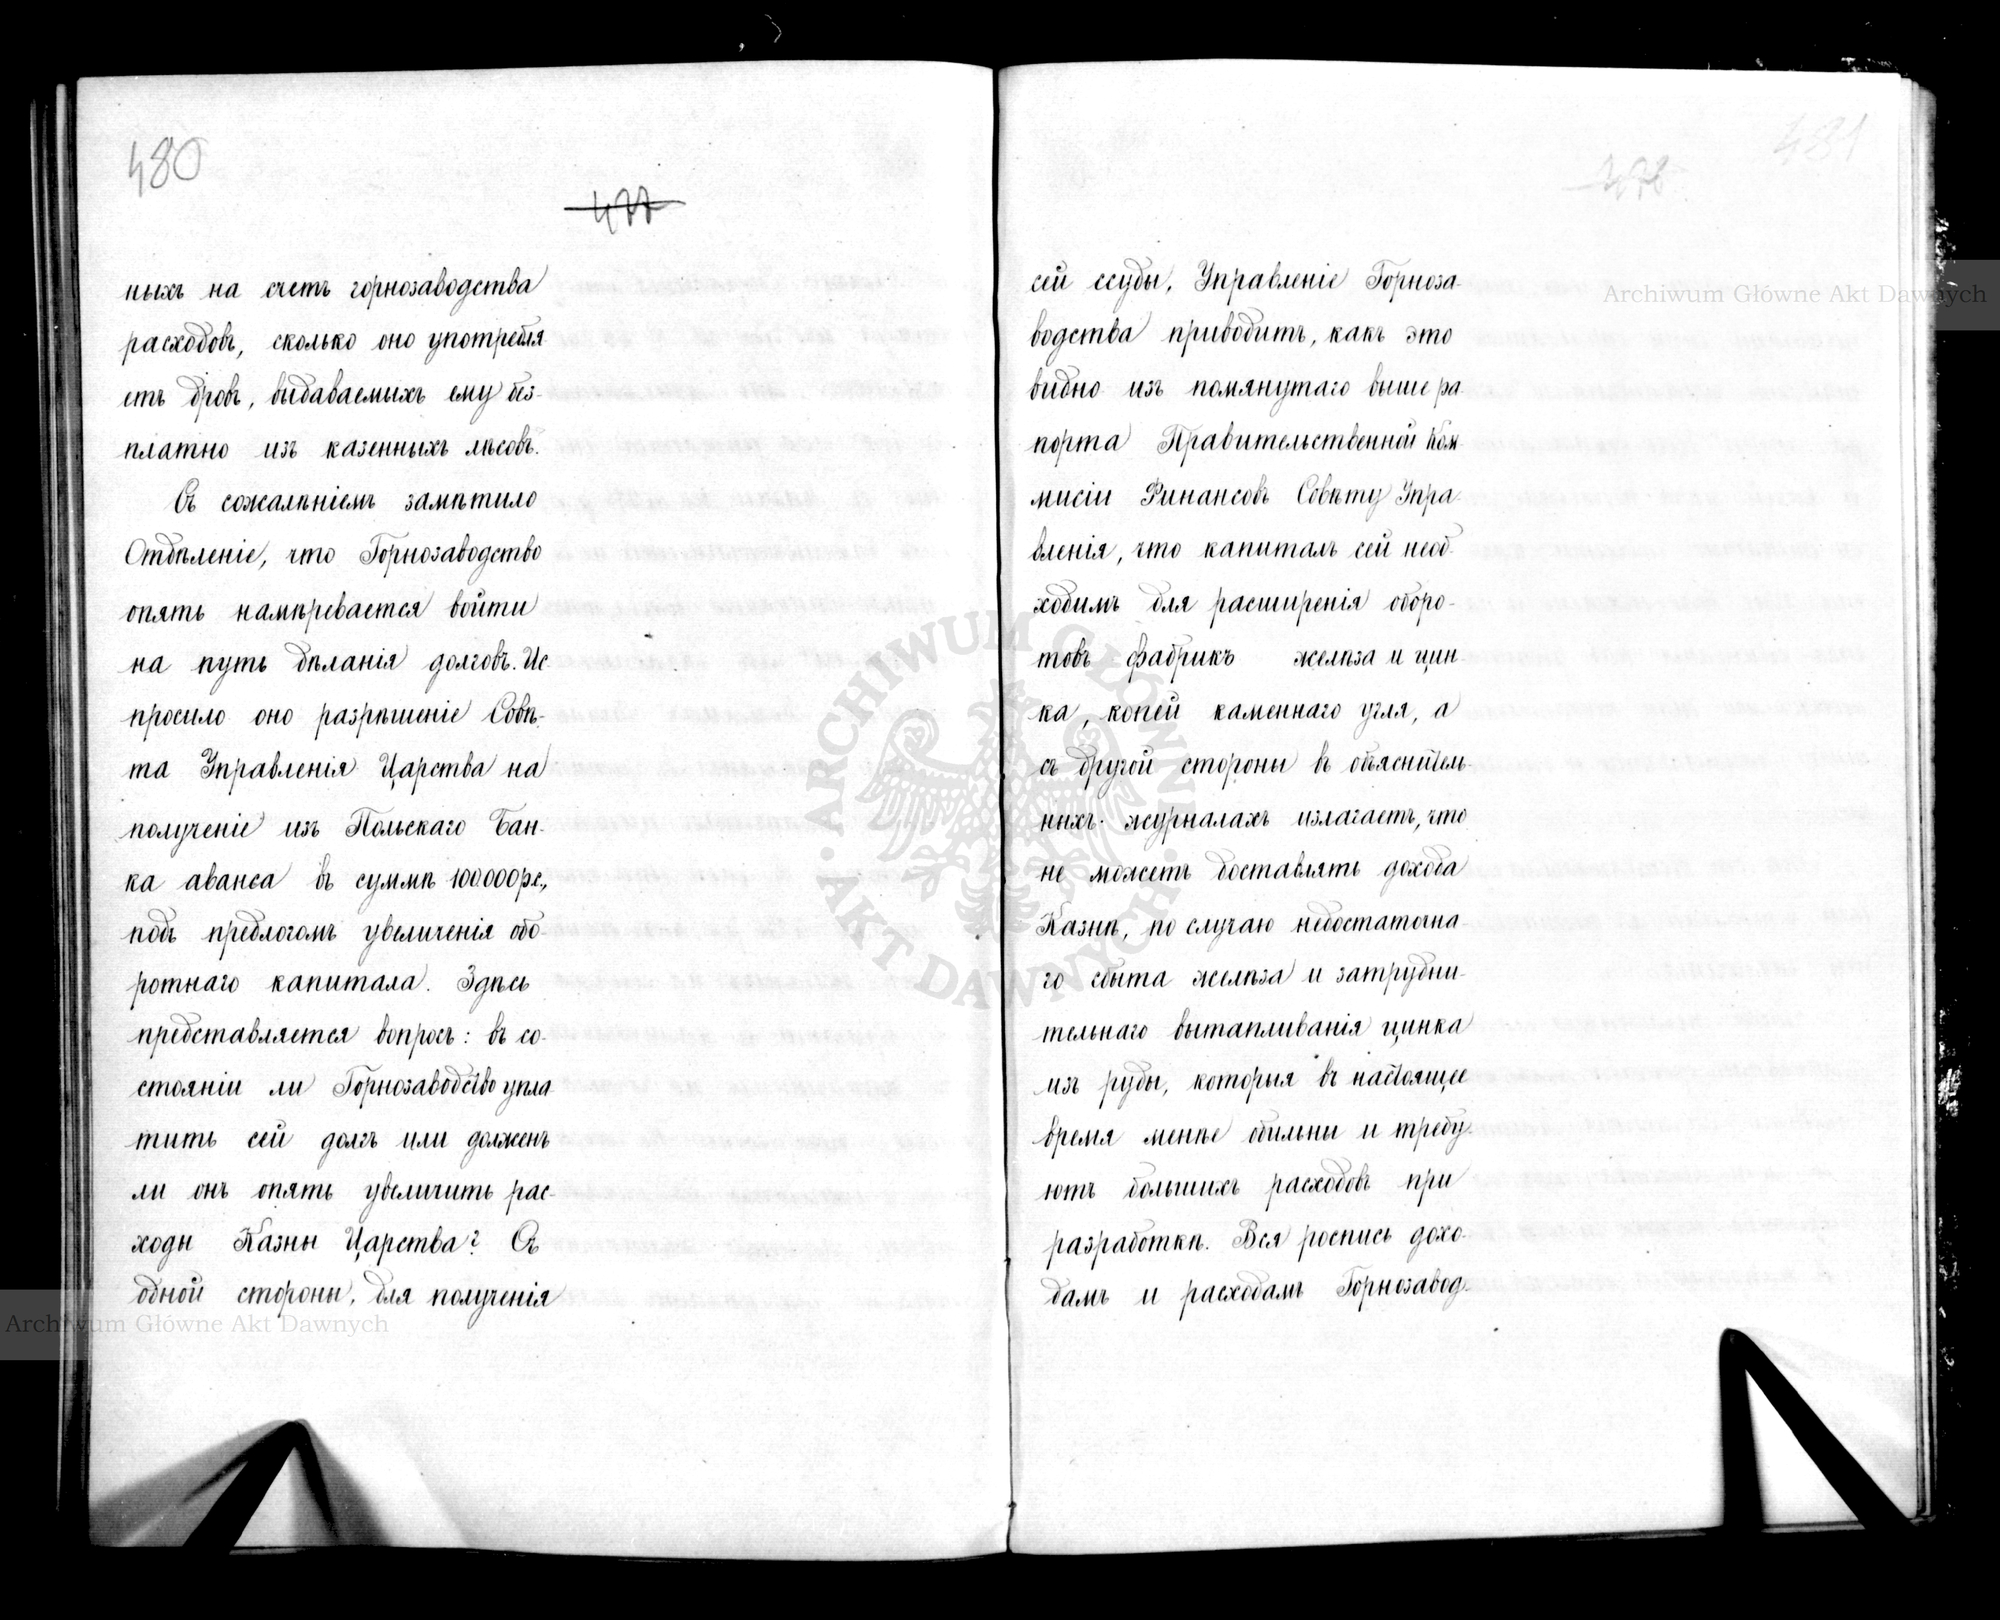 480
477
ныхъ на счетъ горнозаводства
расходовъ, сколько оно употребля
етъ дровъ, выдаваемыхъ ему без-
платно изъ казенныхъ лѣсовъ.
Съ сожалѣніемъ замѣтило
Отдѣленіе, что Горнозаводство
опять намѣревается войти
на путь дѣланія долговъ. Ис-
просило оно разрѣшеніе Совѣ-
та Управленія Царства на
полученіе изъ Польскаго Бан-
ка аванса въ суммѣ 100000 рс.,
подъ предлогомъ увеличенія обо-
ротнаго капитала. Здѣсь
представляется вопросъ: въ со-
стояніи ли Горнозаводство упла
тить сей долгъ или долженъ
ли онъ опять увеличить рас-
ходы Казны Царства? Съ
одной стороны, для полученія
481
478
сей ссуды, Управленіе Горноза-
водства приводитъ, какъ это
видно изъ помянутаго выше ра
порта Правительственной Ком
мисіи Финансовъ Совѣту Упра-
вленія, что капиталъ сей необ-
ходимъ для расширенія оборо-
товъ фабрикъ желѣза и цин
ка, копей каменнаго угля, а
съ другой стороны въ объяснитель
ныхъ журналахъ излагаетъ, что
не можетъ доставлять дохода
Казнѣ, по случаю недостаточна-
го сбыта желѣза и затрудни-
тельнаго вытапливанія цинка
изъ руды, которыя въ настоящее
время менѣе обильны и требу-
ютъ большихъ расходовъ при
разработкѣ. Вся роспись дохо-
дамъ и расходамъ Горнозавод-
Archiwum Główne Akt Dawnych
Archiwum Główne Akt Dawnych
ARCHIWUM GŁÓWNE · AKT DAWNYCH ·